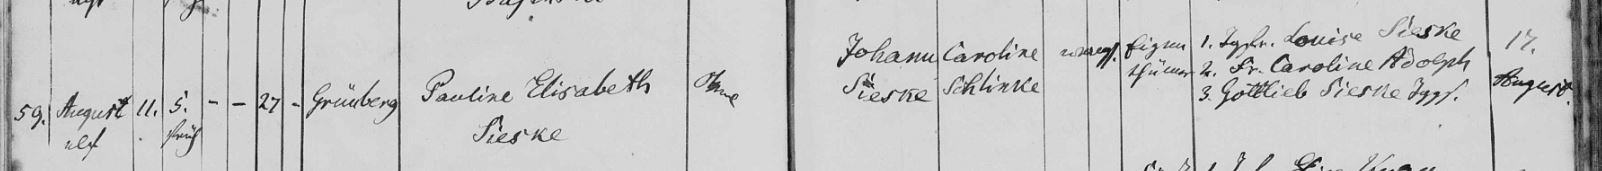 59. August 11. 5. - - 27 - Grünberg Pauline Elisabeth Ohme Johann Caroline evang. Eigen 1. Jgfr. Louise Sieske 17.
elf früh Sieske Sieske Schlinke thümer 2. Fr. Caroline Adolph August.
3. Gottlieb Sieske Jggs.